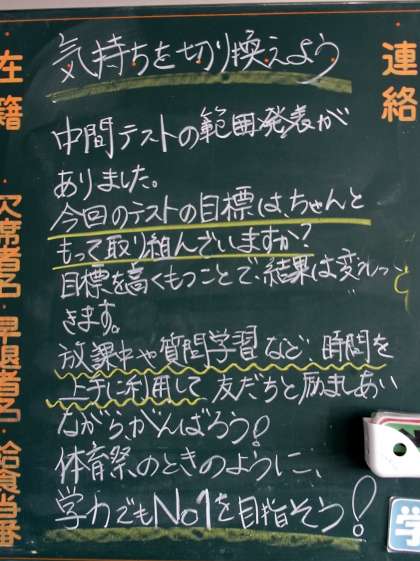 気持ちを切り換えよう
中間テストの範囲発表が
ありました。
今回のテストの目標は、ちゃんと
もって取り組んでいますか?
目標を高くもつことで、結果は変えっ
きます。
放課中や質問学習など、時間を
上手に利用して友だちと励ましあい
ながら、がんばろう!
体育祭のときのように、
学力でもNo1を目指そう!
連絡
在籍
欠席者名・早退者名・給食当番
学